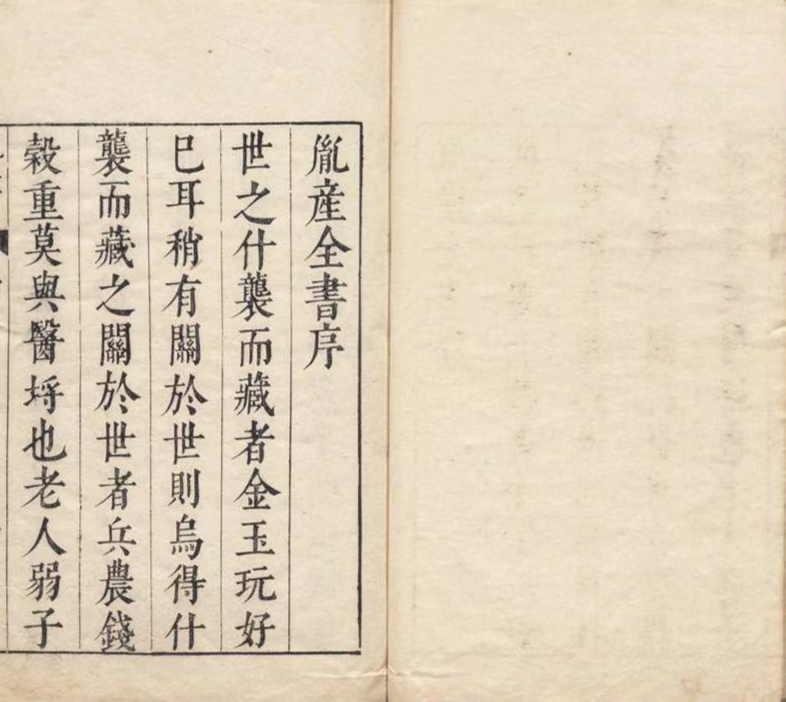 胤産全書序
世之什襲而藏者金玉玩好
已耳稍有關於世則烏得什
襲而藏之關於世者兵農錢
穀重莫與醫埒也老人弱子